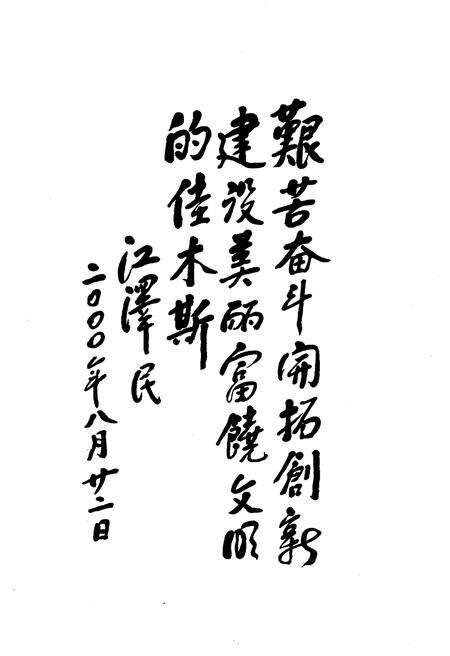 艱苦奋斗開拓創新
建设美丽富饒文明
的佳木斯
江澤民
二〇〇〇年八月廿二日